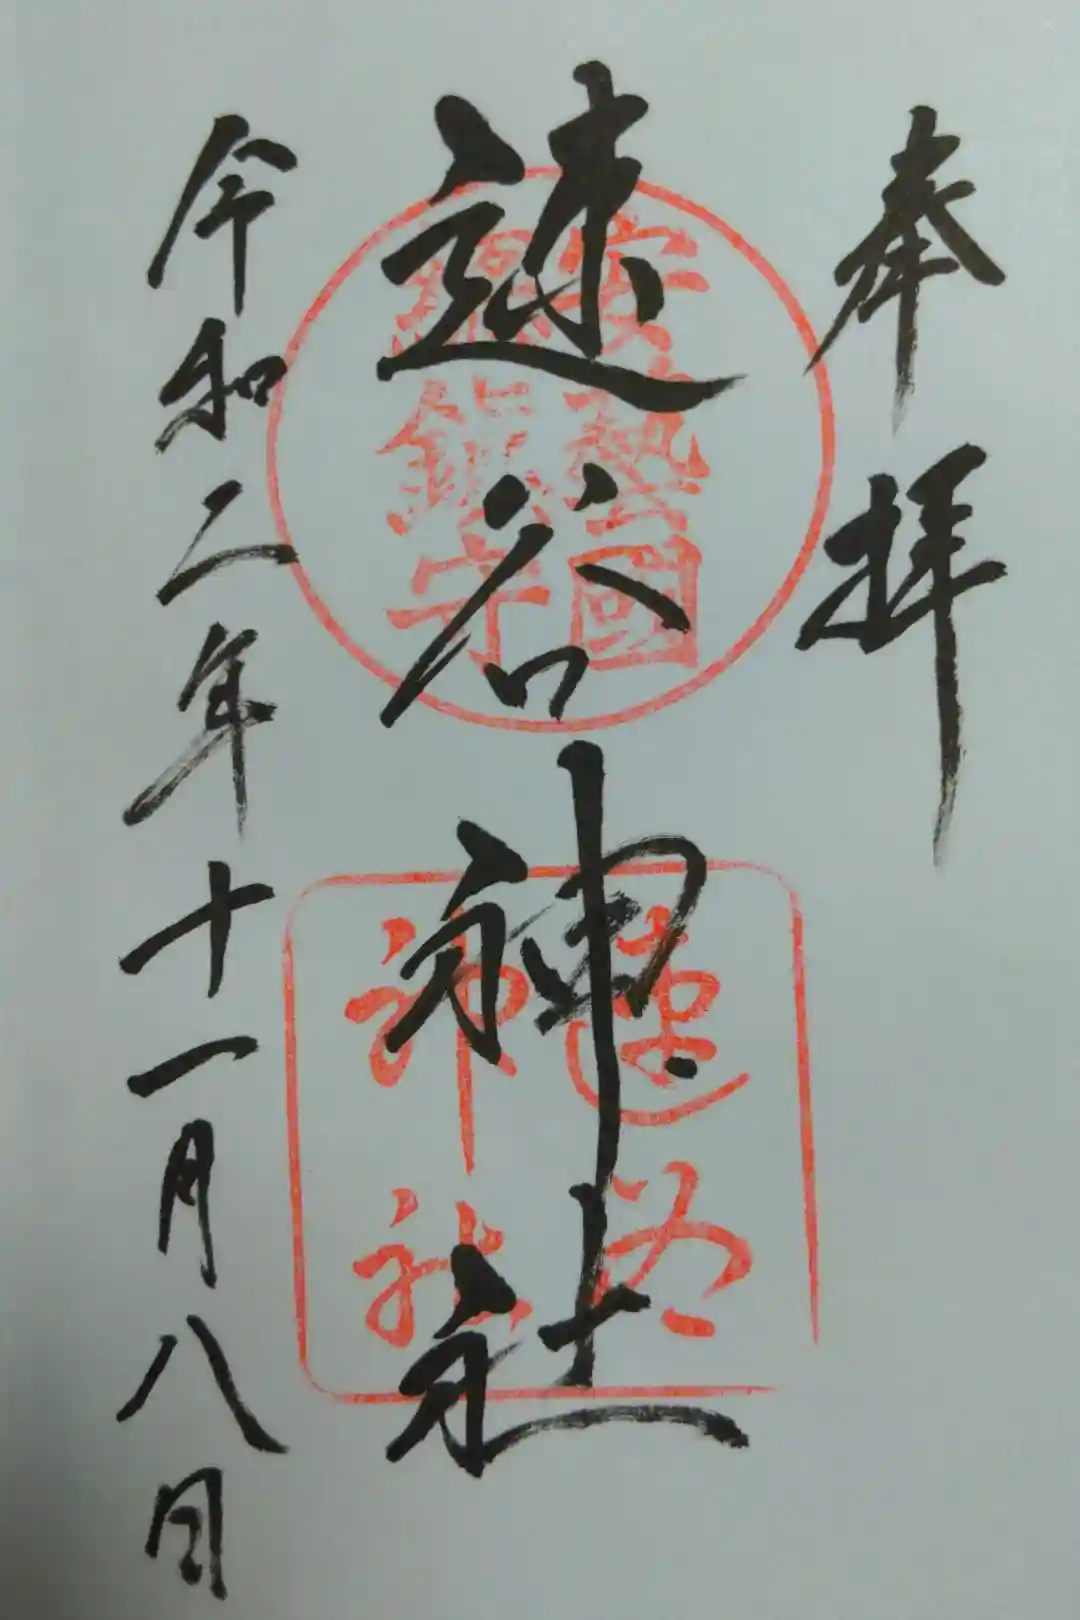 奉拝
速谷神社
令和二年十一月八日
安藝國
總鎮守
速谷
神社